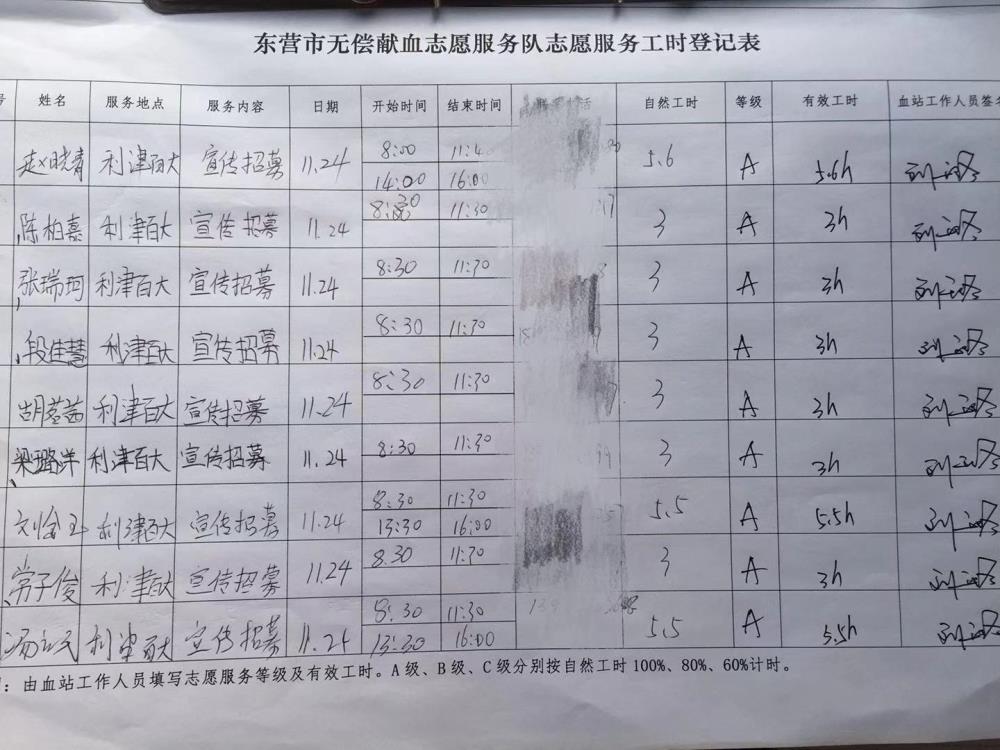 东营市无偿献血志愿服务队志愿服务工时登记表
号 姓名 服务地点 服务内容 日期 开始时间 结束时间 自然工时 等级 有效工时 血站工作人员签名
赵晓青 利津百大 宣传招募 11.24 8:00 11:40 5.6 A 5.6h
14:00 16:00
陈柏嘉 利津百大 宣传招募 11.24 8:30 11:30 3 A 3h
张瑞珂 利津百大 宣传招募 11.24 8:30 11:30 3 A 3h
段佳慧 利津百大 宣传招募 11.24 8:30 11:30 3 A 3h
胡茗茜 利津百大 宣传招募 11.24 8:30 11:30 3 A 3h
梁璐洋 利津百大 宣传招募 11.24 8:30 11:30 3 A 3h
刘金玉 利津百大 宣传招募 11.24 8:30 11:30 5.5 A 5.5h
13:30 16:00
常子俊 利津百大 宣传招募 11.24 8.30 11:30 3 A 3h
利津百大 宣传招募 11.24 8:30 11:30 5.5 A 5.5h
13:30 16:00
：由血站工作人员填写志愿服务等级及有效工时。A 级、B 级、C 级分别按自然工时 100%、80%、60%计时。